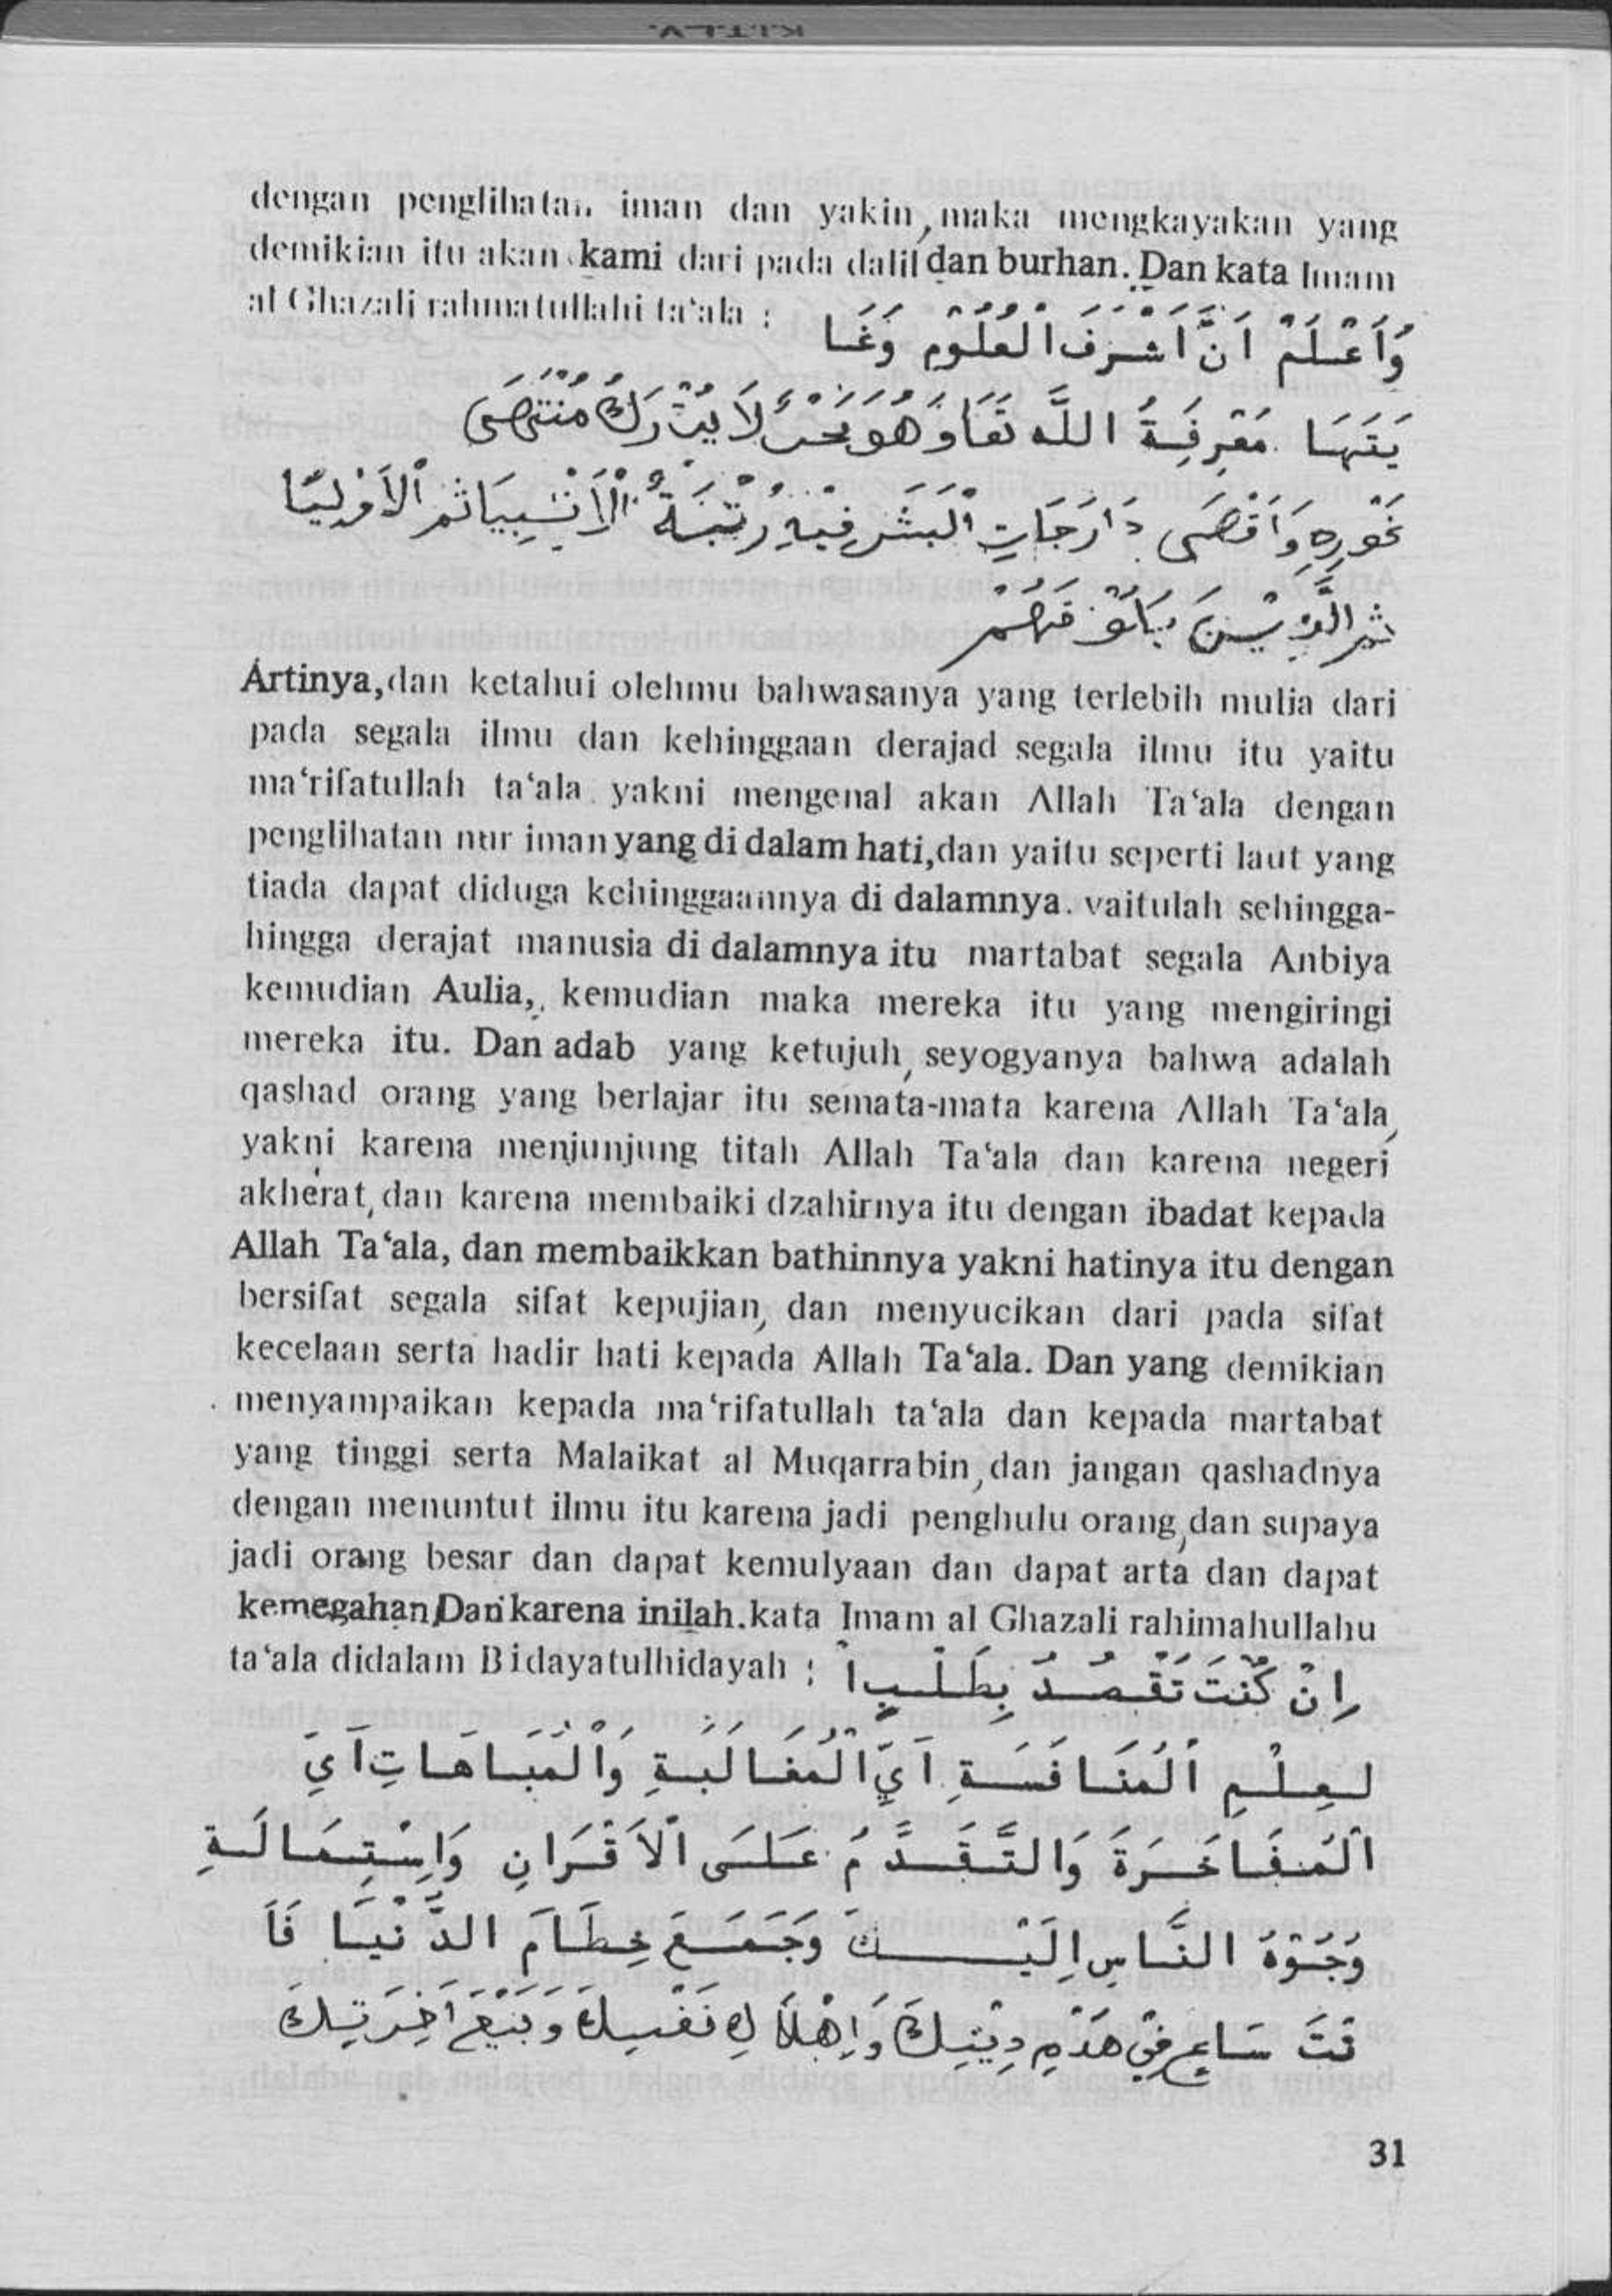 K.I.T.L.V.
dengan penglihatan iman dan yakin, maka mengkayakan yang
demikian itu akan kami dari pada dalil dan burhan. Dan kata Imam
al Ghazali rahmatullahi ta‘ala : وَاَعْلَمْ اَنَّ اَشْرَفَ الْعُلُوْمِ وَغَا
يَتَهَا مَعْرِفَةُ اللَّه تَعَا وَهُوَ بَحْرٌ لَا يُدْرَكُ مُنْتَهَى
غَوْرِهِ وَاَقْصَى دَارَجَاتِ الْبَشَرِ فِيْهِ رُتْبَةُ الْاَنْبِيَا ثُمَّ الْاَوْلِيَا
ثم الَّذِيْنَ يَلُوْنَهُمْ
Artinya, dan ketahui olehmu bahwasanya yang terlebih mulia dari
pada segala ilmu dan kehinggaan derajad segala ilmu itu yaitu
ma‘rifatullah ta‘ala yakni mengenal akan Allah Ta‘ala dengan
penglihatan nur iman yang di dalam hati, dan yaitu seperti laut yang
tiada dapat diduga kehinggaannya di dalamnya. yaitulah sehingga-
hingga derajat manusia di dalamnya itu martabat segala Anbiya
kemudian Aulia, kemudian maka mereka itu yang mengiringi
mereka itu. Dan adab yang ketujuh, seyogyanya bahwa adalah
qashad orang yang berlajar itu semata-mata karena Allah Ta‘ala,
yakni karena menjunjung titah Allah Ta‘ala dan karena negeri
akherat, dan karena membaiki dzahirnya itu dengan ibadat kepada
Allah Ta‘ala, dan membaikkan bathinnya yakni hatinya itu dengan
bersifat segala sifat kepujian, dan menyucikan dari pada sifat
kecelaan serta hadir hati kepada Allah Ta‘ala. Dan yang demikian
menyampaikan kepada ma‘rifatullah ta‘ala dan kepada martabat
yang tinggi serta Malaikat al Muqarrabin, dan jangan qashadnya
dengan menuntut ilmu itu karena jadi penghulu orang, dan supaya
jadi orang besar dan dapat kemulyaan dan dapat arta dan dapat
kemegahan, Dan karena inilah. kata Imam al Ghazali rahimahullahu
ta‘ala didalam Bidayatulhidayah : اِنْ كُنْتَ تَقْصُدُ بِطَلَبِ ا
لعِلْمِ اَلْمُنَافَسَةِ اَيِّ الْمُغَالَبَةِ وَالْمُبَاهَاتِ اَيِ
اَلْمُفَاخَرَةَ وَالتَّقَدَّمُ عَلَى الْاَقْرَانِ وَاِسْتِمَالَةِ
وُجُوْهُ النَّاسِ اِلَيْكَ وَجَمَعَ حِطَامَ الدُّنْيَا فَاَ
نْتَ سَاعٍ فِيْ هَدْمِ دِيْنِكَ وَاِهْلَاكِ نَفْسِكَ وَبَيْعَ اَخِرَتِكَ
31